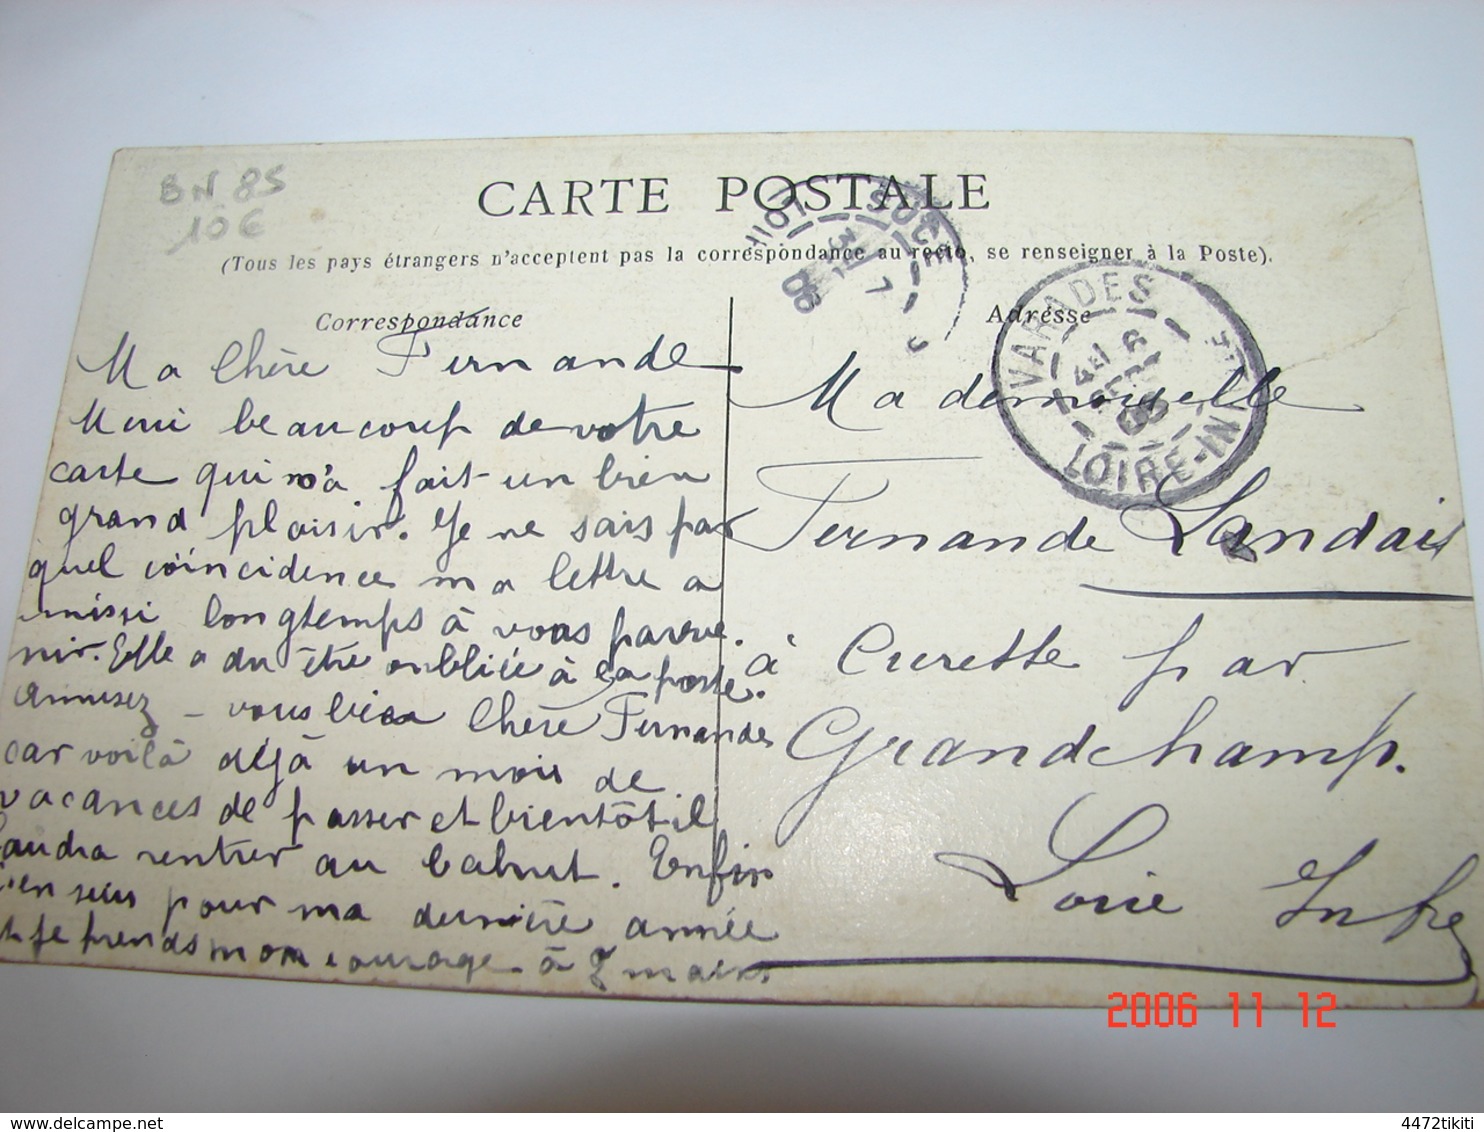 BN 85
10€
CARTE POSTALE
(Tous les pays étrangers n'acceptent pas la correspondance au recto, se renseigner à la Poste).
Correspondance
Ma Chère Fernande
Merci beaucoup de votre
carte qui m'a fait un bien
grand plaisir. Je ne sais par
quel coïncidence ma lettre a
missi longtemps à vous parve.
nir. Elle a du être oubliée à la poste.
Amusez-vous bien Chère Fernande
car voilà déjà un mois de
vacances de passer et bientôt il
faudra rentrer au bahut. Enfin
j'en suis pour ma dernière année
et je prends mon courage à 2 mains
Adresse
Mademoiselle
Fernande Landais
à Curette par
Grandchamp.
Loire Infre
VARADES
LOIRE-INF
08
2006 11 12
4472tikiti